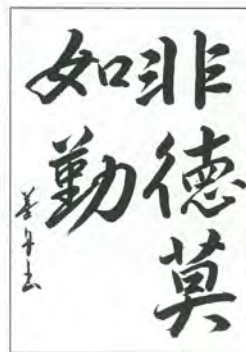 非德莫
如勤
书